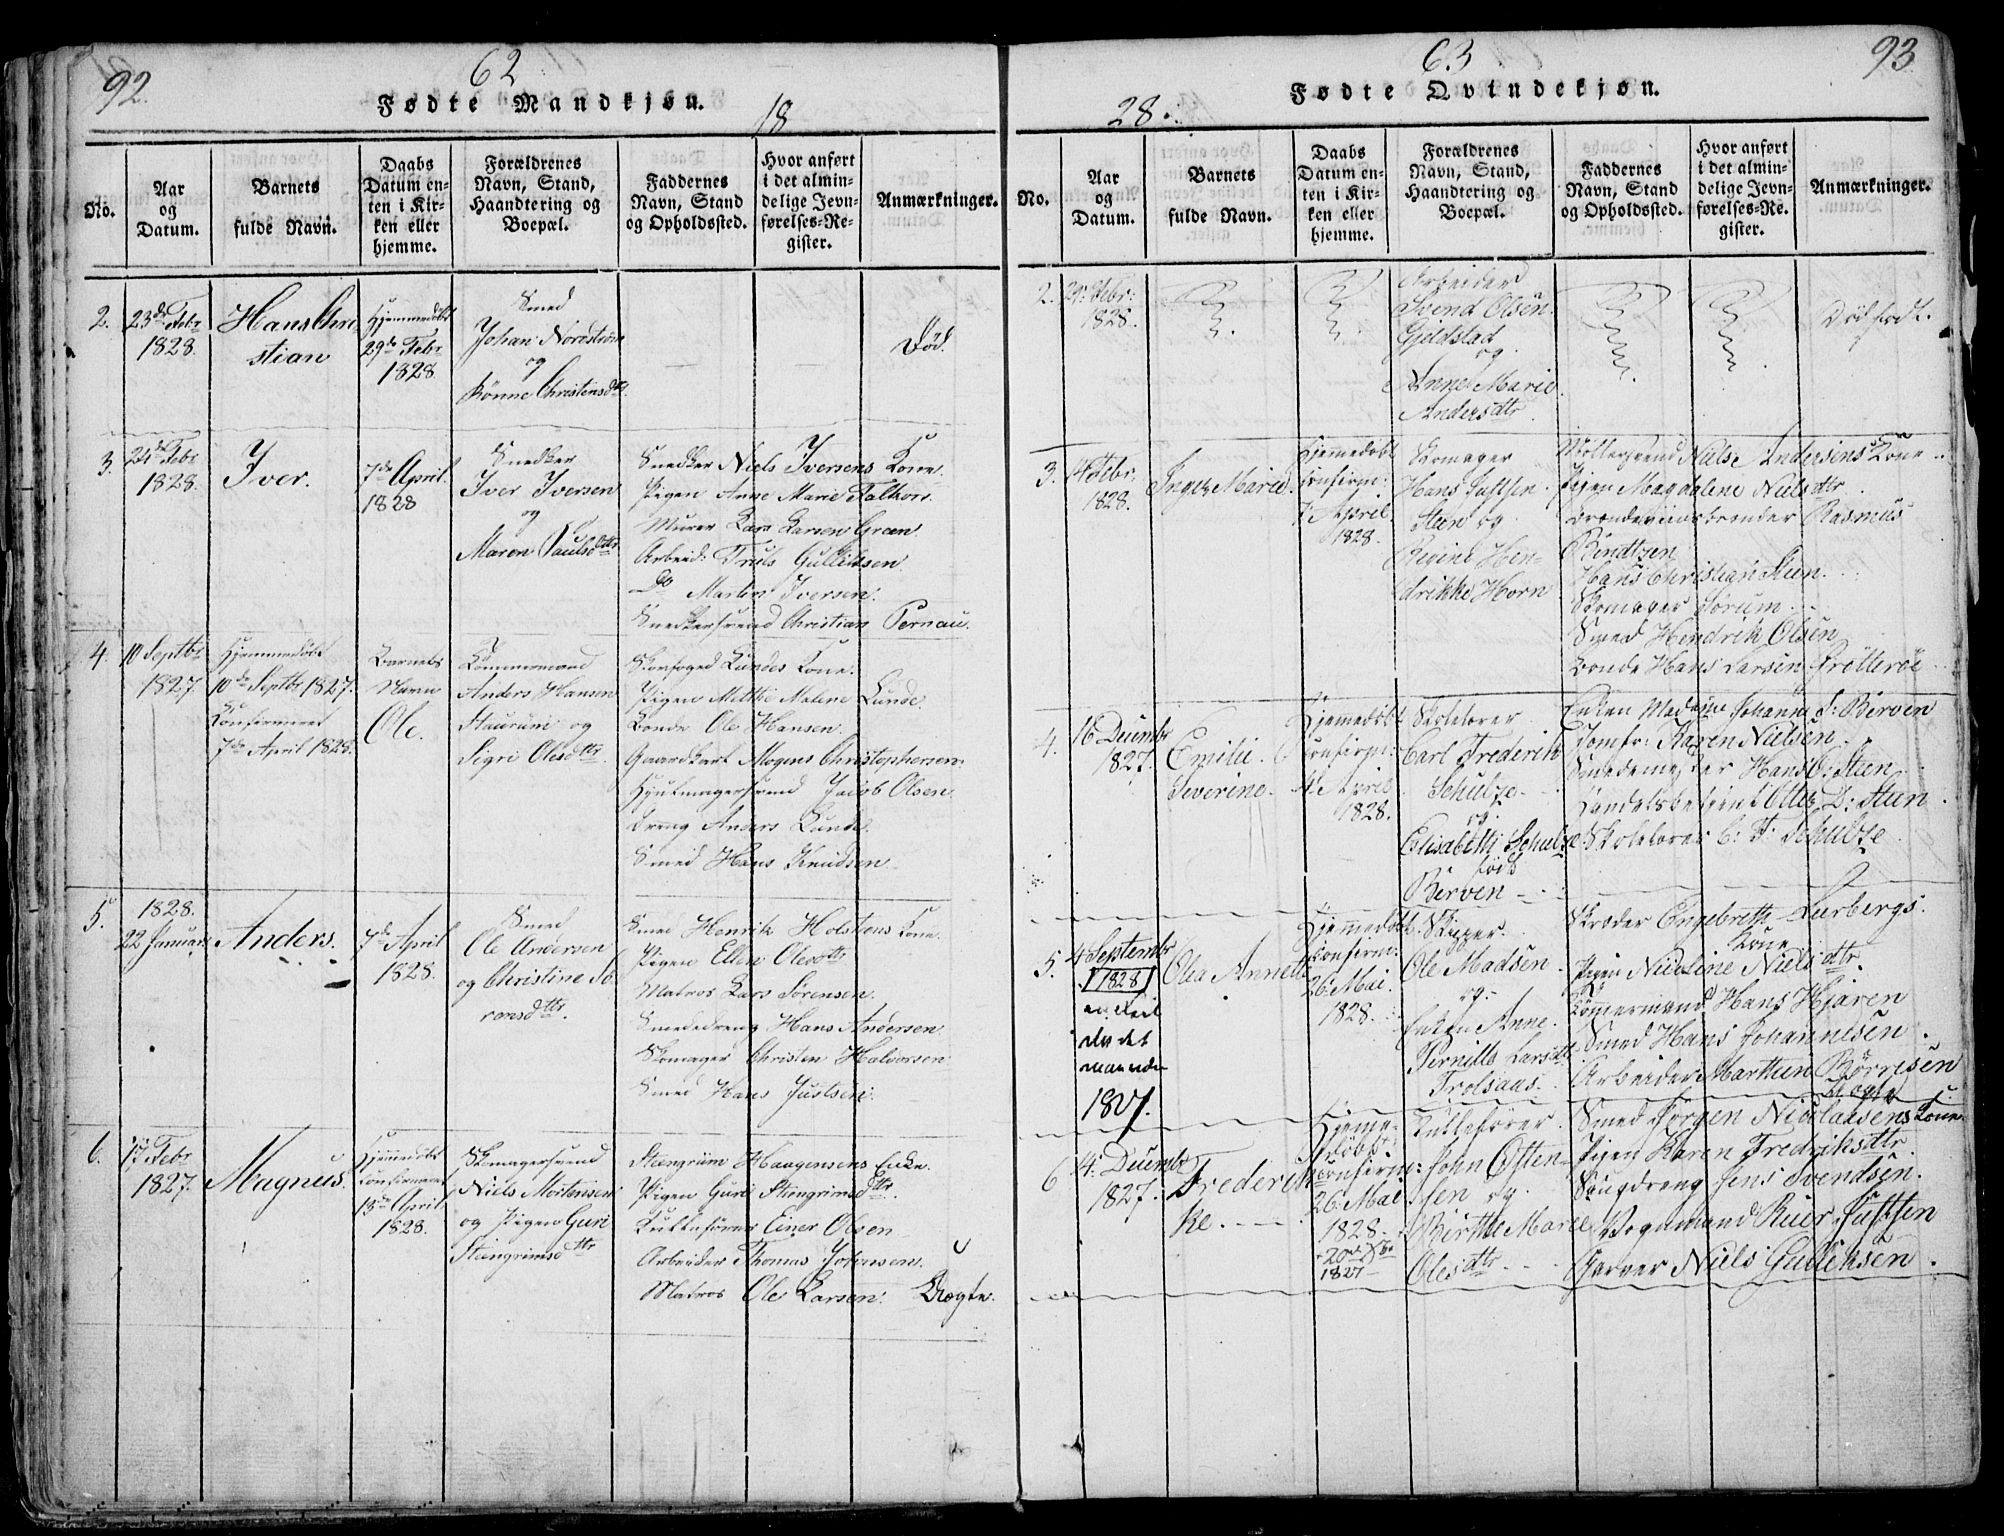 92.
62
Fødte Mandkjøn.
18
No.
Aar
og
Datum.
Barnets
fulde Navn.
Daabs
Datum en-
ten i Kir-
ken eller
hjemme.
Forældrenes
Navn, Stand,
Haandtering og
Boepæl.
Faddernes
Navn, Stand
og Opholdssted.
Hvor anført
i det almin-
delige Jevn-
førelses-Re-
gister.
Anmærkninger.
2.
23de Febr
1828.
Hans Chri
stian
Hjemmedøbt
29de Febr
1828
Smed
Johan Nordstrøm
og
Rønne Christensdtr.
Død.
3.
24de Febr
1828.
Iver.
7de April
1828
Snedker
Iver Iversen
og
Maren Paulsdttr
Snedker Niels Iversens Kone.
Pigen Anne Marie Falkorr
Murer Lars Larsen Green
Arbeid: Truls Gulliksen
Do Martin Iversen.
Snedkersvend Christian Pernau.
4.
10 Septbr
1827.
Hjemmedøbt
10de Septbr 1827.
Confirmeret
7de April 1828.
Barnets
Navn
Ole.
Tømmermand
Anders Hansen
Staurum og
Sigri Olesdttr.
Skovfoged Lundes Kone.
Pigen Mitthe Malene Lunde.
Bonde Ole Hansen.
Gaardkarl Mogens Christophersen.
Hjulmagersvend Jacob Olsen.
Dreng Anders Lunde.
Smed Hans Knudsen.
5.
1828.
22 Januari
Anders.
7de April
1828.
Smed
Ole Andersen
og Christine So
rensdttr.
Smed Henrik Holstens Kone.
Pigen Ellen Olesdttr
Matros Lars Sørensen.
Smededreng Hans Andersen
Skomager Christen Halvorsen
Smed Hans Justsen.
6.
17 Febr
1827.
Magnus.
Hjemmedøbt
Confirmeret
13de April
1828.
Skomagersvend
Niels Mortensen
og Pigen Guri
Steingrimsdttr
Steingrim Haagensens Enke.
Pigen Guri Steingrimsdttr.
Kullefører Einer Olsen
Arbeider Thomas Johnsen.
Matros Ole Larsen.
U
Ægte.
63
93
Fødte Qvindekjøn.
28.
No.
Aar
og
Datum.
Barnets
fulde Navn.
Daabs
Datum en-
ten i Kir-
ken eller
hjemme.
Forældrenes
Navn, Stand,
Haandtering og
Boepæl.
Faddernes
Navn, Stand
og Opholdssted.
Hvor anført
i det almin-
delige Jevn-
førelses-Re-
gister.
Anmærkninger.
2.
29: Febr:
1828.
Arbeider
Svend Olsen
Gjeldstad
og
Anne Marie
Andersdtr
Dødfødt.
3.
4 Febr.
1828.
Inger Marie.
Hjemedøbt
Confirm:
7 April
1828.
Skomager
Hans Justsen
Steen og
Regine Hen-
drikke Horn
Møllersvend Nilse Andersens Kone
Pigen Magdalene Nielsdtr.
Brændeviinsbrender Rasmus
Bendtzen
Hans Christian Steen.
Skomager Sørum
Smed Hendrik Olsen
Bonde Hans Larsen Trötteröe
4.
16 Decembr
1827.
Emilie
Severine.
Hjemedøbt
Confirm:
April
1828.
Skolelærer
Carl Frederik
Schultze
og
Elisabeth Schultze
født
Berven
Enken Madame Johanna S: Berven
Jomfr: Karen Nielsen
Smedemester Hans O: Steen
Handelsbetient Otto D: Steen.
Skolelærer C. F. Schultze
5.
4 Septembr
1828
en Feil
da det
maa være
1827.
Olea Annette
Hjemmedøbt
Confirm:
26 Mai.
1828.
Skipper.
Ole Madsen
og
Enken Anne
Pernille Larsdtr
Trolsaas.
Skræder Engebreth Lurbergs.
Kone
Pigen Nicoline Nielsdtr.
Tømmermand Hans Hjaren
Smed Hans Johannesen.
Arbeider Marthin Børresen
U ægte
6
4. Decembr
1827.
Frederik
ke
Hjeme-
døbt
Confirm:
26 Mai
1828.
20de Xbr
1827
Kullefører.
John Osten-
sen og
Birthe Marie
Olesdtr
Smed Jørgen Nicolaisens Kone
Pigen Karen Fredriksdtr.
Saugdreng Jens Svendsen.
Vognmand Rier Justsen
Garver Niels Gulliksen.